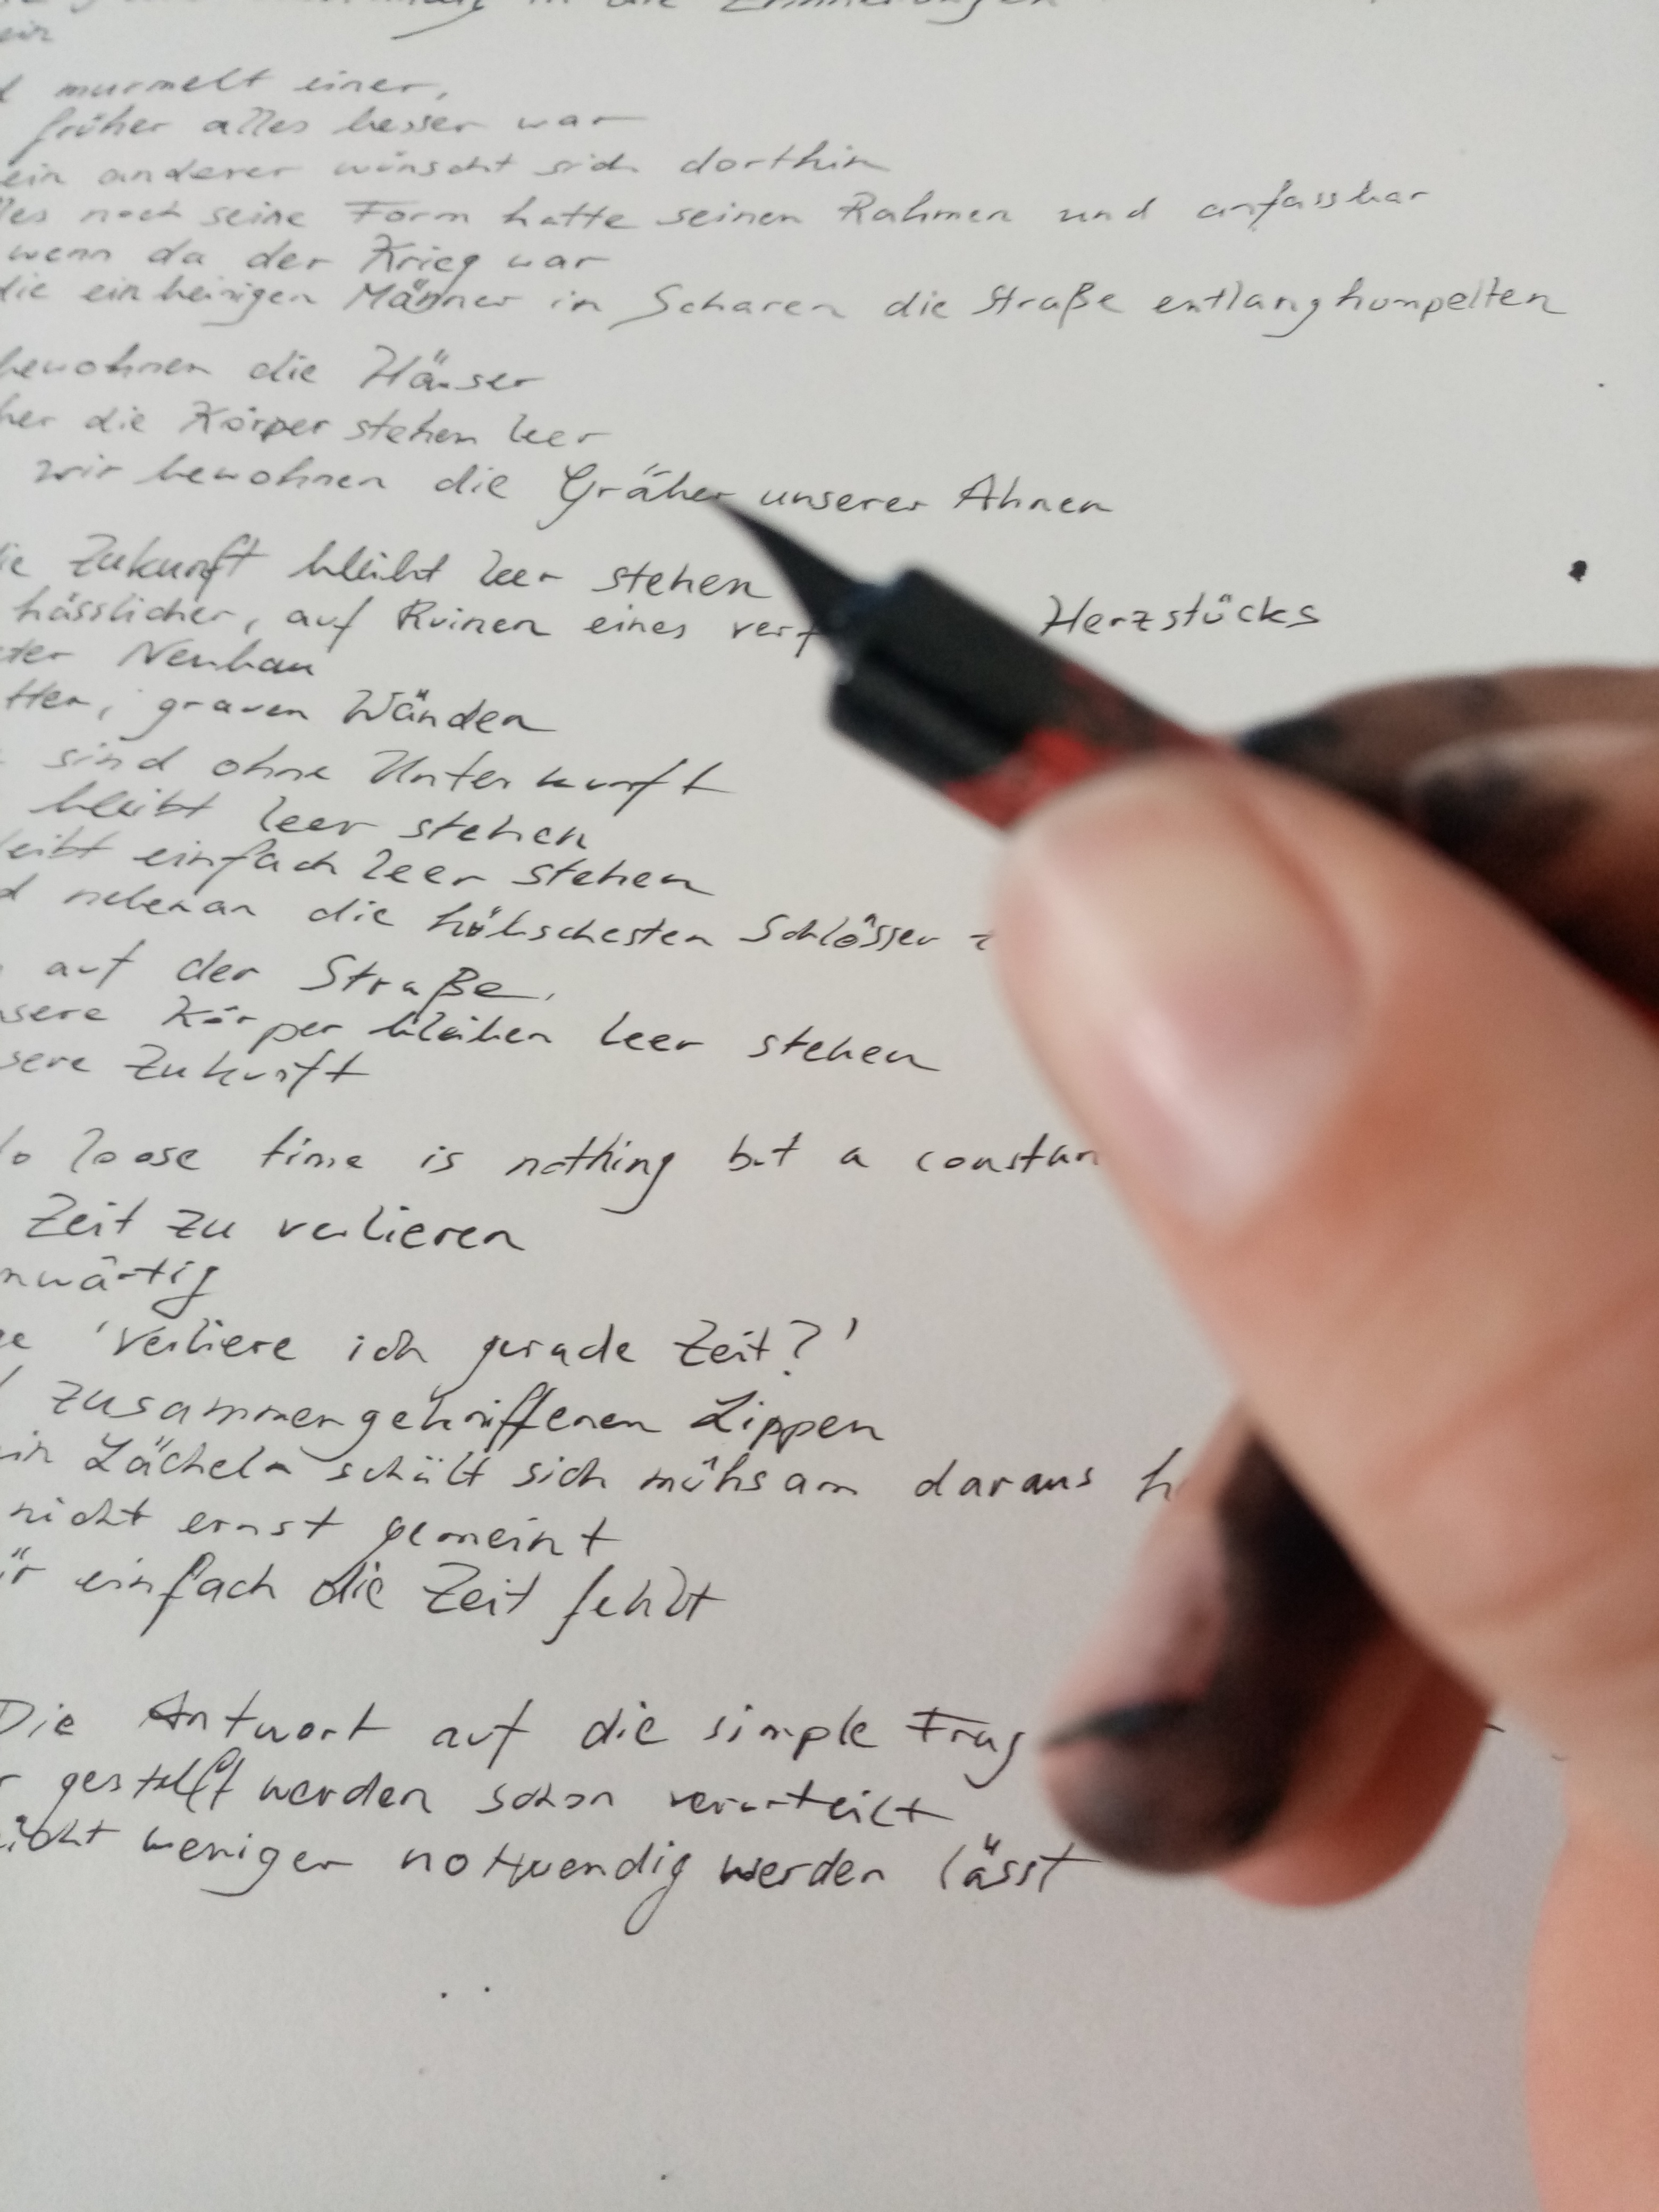 in die Erinnerungen
murmelt einer,
früher alles besser war
ein anderer wünscht sich dorthin
les noch seine Form hatte seinen Rahmen und anfassbar
wenn da der Krieg war
die einbeinigen Männer in Scharen die Straße entlanghumpelten
bewohnen die Häuser
ber die Körper stehen leer
wir bewohnen die Gräber unserer Ahnen
ie Zukunft bleibt leer stehen
hässlicher, auf Ruinen eines verf Herzstücks
ter Neubau
tten, grauen Wänden
sind ohne Unterkunft
bleibt leer stehen
leibt einfach leer stehen
d nebenan die hübschesten Schlösser
auf der Straße.
nsere Körper bleiben leer stehen
sere Zukunft
to loose time is nothing but a constan
Zeit zu verlieren
nwärtig
ge 'Verliere ich gerade Zeit?'
zusammengekniffenen Lippen
in Lächeln schält sich mühsam daraus h
nicht ernst gemeint
ir einfach die Zeit fehlt
Die Antwort auf die simple Frag
r gestellt werden schon verurteilt
icht weniger notwendig werden lässt